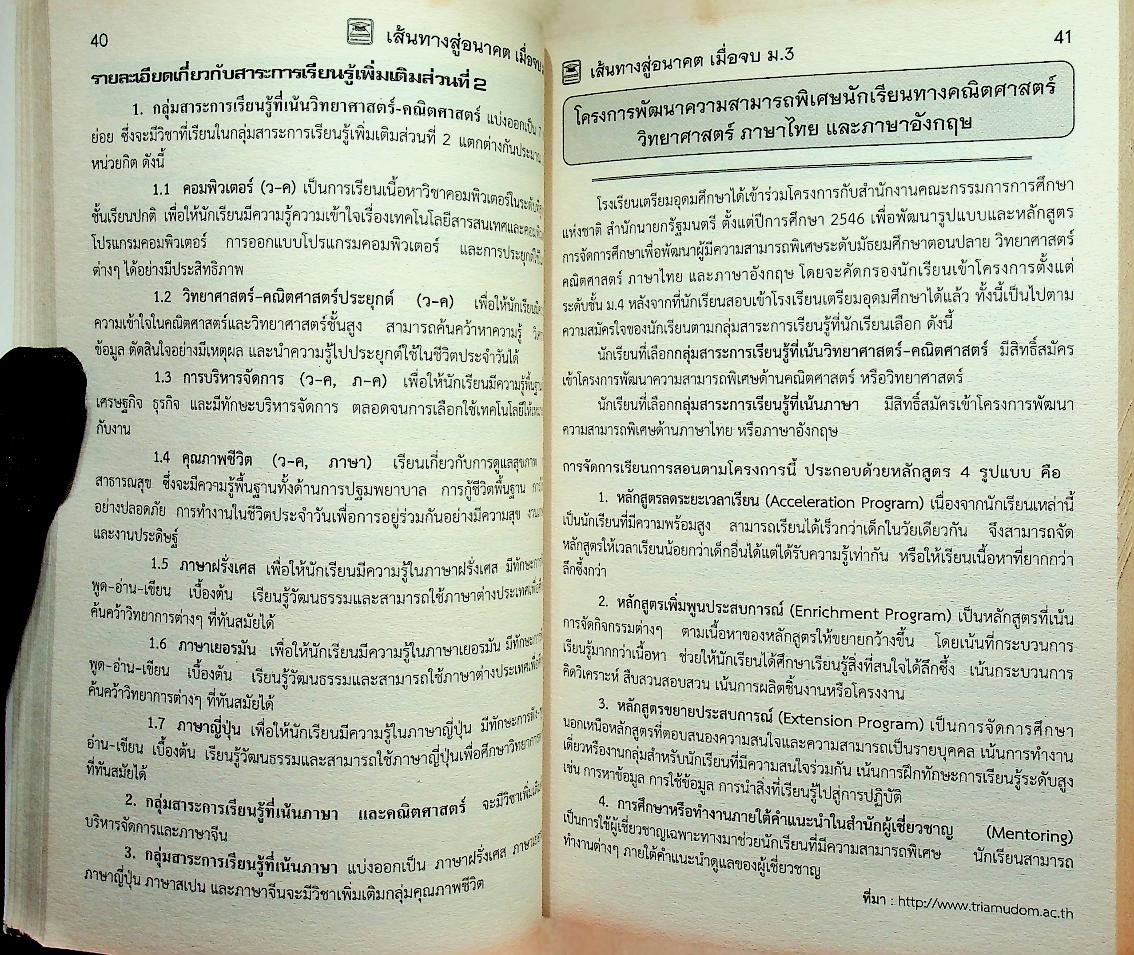 40
เส้นทางสู่อนาคต เมื่อจบ
รายละเอียดเกี่ยวกับสาระการเรียนรู้เพิ่มเติมส่วนที่ 2
1. กลุ่มสาระการเรียนรู้ที่เน้นวิทยาศาสตร์-คณิตศาสตร์ แบ่งออกเป็น 7
ย่อย ซึ่งจะมีวิชาที่เรียนในกลุ่มสาระการเรียนรู้เพิ่มเติมส่วนที่ 2 แตกต่างกันประมาณ
หน่วยกิต ดังนี้
1.1 คอมพิวเตอร์ (ว-ค) เป็นการเรียนเนื้อหาวิชาคอมพิวเตอร์ในระดับ
ชั้นเรียนปกติ เพื่อให้นักเรียนมีความรู้ความเข้าใจเรื่องเทคโนโลยีสารสนเทศและ
โปรแกรมคอมพิวเตอร์ การออกแบบโปรแกรมคอมพิวเตอร์ และการประยุกต์ใช้
ต่างๆ ได้อย่างมีประสิทธิภาพ
1.2 วิทยาศาสตร์-คณิตศาสตร์ประยุกต์ (ว-ค) เพื่อให้นักเรียน
ความเข้าใจในคณิตศาสตร์และวิทยาศาสตร์ชั้นสูง สามารถค้นคว้าหาความรู้
ข้อมูล ตัดสินใจอย่างมีเหตุผล และนำความรู้ไปประยุกต์ใช้ในชีวิตประจำวันได้
1.3 การบริหารจัดการ (ว-ค, ภ-ค) เพื่อให้นักเรียนมีความรู้พื้นฐาน
เศรษฐกิจ ธุรกิจ และมีทักษะบริหารจัดการ ตลอดจนการเลือกใช้เทคโนโลยีให้
กับงาน
1.4 คุณภาพชีวิต (ว-ค, ภาษา) เรียนเกี่ยวกับการดูแลสุขภาพ
สาธารณสุข ซึ่งจะมีความรู้พื้นฐานทั้งด้านการปฐมพยาบาล การกู้ชีวิตพื้นฐาน
อย่างปลอดภัย การทำงานในชีวิตประจำวันเพื่อการอยู่ร่วมกันอย่างมีความสุข
และงานประดิษฐ์
1.5 ภาษาฝรั่งเศส เพื่อให้นักเรียนมีความรู้ในภาษาฝรั่งเศส มีทักษะ
พูด-อ่าน-เขียน เบื้องต้น เรียนรู้วัฒนธรรมและสามารถใช้ภาษาต่างประเทศ
ค้นคว้าวิทยาการต่างๆ ที่ทันสมัยได้
1.6 ภาษาเยอรมัน เพื่อให้นักเรียนมีความรู้ในภาษาเยอรมัน มีทักษะ
พูด-อ่าน-เขียน เบื้องต้น เรียนรู้วัฒนธรรมและสามารถใช้ภาษาต่างประเทศ
ค้นคว้าวิทยาการต่างๆ ที่ทันสมัยได้
1.7 ภาษาญี่ปุ่น เพื่อให้นักเรียนมีความรู้ในภาษาญี่ปุ่น มีทักษะการฟัง-
อ่าน-เขียน เบื้องต้น เรียนรู้วัฒนธรรมและสามารถใช้ภาษาญี่ปุ่นเพื่อศึกษาวิทยาการ
ที่ทันสมัยได้
2. กลุ่มสาระการเรียนรู้ที่เน้นภาษา และคณิตศาสตร์ จะมีวิชาเพิ่มเติม
บริหารจัดการและภาษาจีน
3. กลุ่มสาระการเรียนรู้ที่เน้นภาษา แบ่งออกเป็น ภาษาฝรั่งเศส
ภาษาญี่ปุ่น ภาษาสเปน และภาษาจีนจะมีวิชาเพิ่มเติมกลุ่มคุณภาพชีวิต
41
เส้นทางสู่อนาคต เมื่อจบ ม.3
โครงการพัฒนาความสามารถพิเศษนักเรียนทางคณิตศาสตร์
วิทยาศาสตร์ ภาษาไทย และภาษาอังกฤษ
โรงเรียนเตรียมอุดมศึกษาได้เข้าร่วมโครงการกับสำนักงานคณะกรรมการการศึกษา
แห่งชาติ สำนักนายกรัฐมนตรี ตั้งแต่ปีการศึกษา 2546 เพื่อพัฒนารูปแบบและหลักสูตร
การจัดการศึกษาเพื่อพัฒนาผู้มีความสามารถพิเศษระดับมัธยมศึกษาตอนปลาย วิทยาศาสตร์
คณิตศาสตร์ ภาษาไทย และภาษาอังกฤษ โดยจะคัดกรองนักเรียนเข้าโครงการตั้งแต่
ระดับชั้น ม.4 หลังจากที่นักเรียนสอบเข้าโรงเรียนเตรียมอุดมศึกษาได้แล้ว ทั้งนี้เป็นไปตาม
ความสมัครใจของนักเรียนตามกลุ่มสาระการเรียนรู้ที่นักเรียนเลือก ดังนี้
นักเรียนที่เลือกกลุ่มสาระการเรียนรู้ที่เน้นวิทยาศาสตร์-คณิตศาสตร์ มีสิทธิ์สมัคร
เข้าโครงการพัฒนาความสามารถพิเศษด้านคณิตศาสตร์ หรือวิทยาศาสตร์
นักเรียนที่เลือกกลุ่มสาระการเรียนรู้ที่เน้นภาษา มีสิทธิ์สมัครเข้าโครงการพัฒนา
ความสามารถพิเศษด้านภาษาไทย หรือภาษาอังกฤษ
การจัดการเรียนการสอนตามโครงการนี้ ประกอบด้วยหลักสูตร 4 รูปแบบ คือ
1. หลักสูตรลดระยะเวลาเรียน (Acceleration Program) เนื่องจากนักเรียนเหล่านี้
เป็นนักเรียนที่มีความพร้อมสูง สามารถเรียนได้เร็วกว่าเด็กในวัยเดียวกัน จึงสามารถจัด
หลักสูตรให้เวลาเรียนน้อยกว่าเด็กอื่นได้แต่ได้รับความรู้เท่ากัน หรือให้เรียนเนื้อหาที่ยากกว่า
ลึกซึ้งกว่า
2. หลักสูตรเพิ่มพูนประสบการณ์ (Enrichment Program) เป็นหลักสูตรที่เน้น
การจัดกิจกรรมต่างๆ ตามเนื้อหาของหลักสูตรให้ขยายกว้างขึ้น โดยเน้นที่กระบวนการ
เรียนรู้มากกว่าเนื้อหา ช่วยให้นักเรียนได้ศึกษาเรียนรู้สิ่งที่สนใจได้ลึกซึ้ง เน้นกระบวนการ
คิดวิเคราะห์ สืบสวนสอบสวน เน้นการผลิตชิ้นงานหรือโครงงาน
3. หลักสูตรขยายประสบการณ์ (Extension Program) เป็นการจัดการศึกษา
นอกเหนือหลักสูตรที่ตอบสนองความสนใจและความสามารถเป็นรายบุคคล เน้นการทำงาน
เดี่ยวหรืองานกลุ่มสำหรับนักเรียนที่มีความสนใจร่วมกัน เน้นการฝึกทักษะการเรียนรู้ระดับสูง
เช่น การหาข้อมูล การใช้ข้อมูล การนำสิ่งที่เรียนรู้ไปสู่การปฏิบัติ
4. การศึกษาหรือทำงานภายใต้คำแนะนำในสำนักผู้เชี่ยวชาญ (Mentoring)
เป็นการใช้ผู้เชี่ยวชาญเฉพาะทางมาช่วยนักเรียนที่มีความสามารถพิเศษ นักเรียนสามารถ
ทำงานต่างๆ ภายใต้คำแนะนำดูแลของผู้เชี่ยวชาญ
ที่มา : http://www.triamudom.ac.th